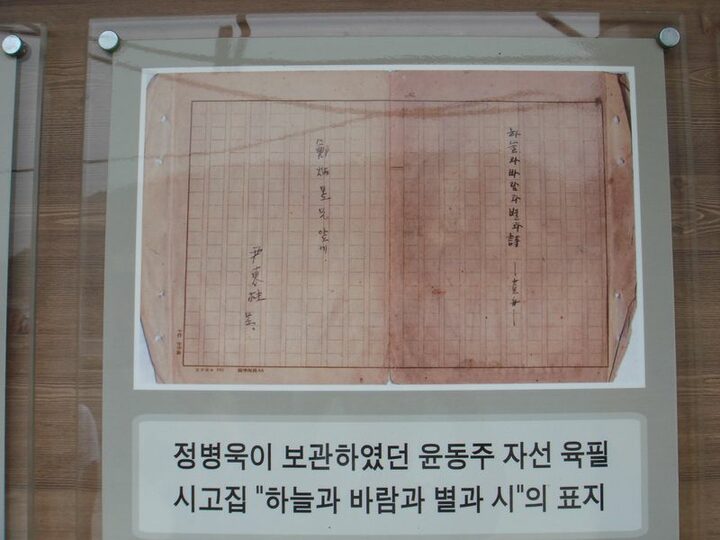 하늘과 바람과 별과 詩
鄭炳昱 兄 앞에.
尹東柱 呈
정병욱이 보관하였던 윤동주 자선 육필
시고집 "하늘과 바람과 별과 시"의 표지